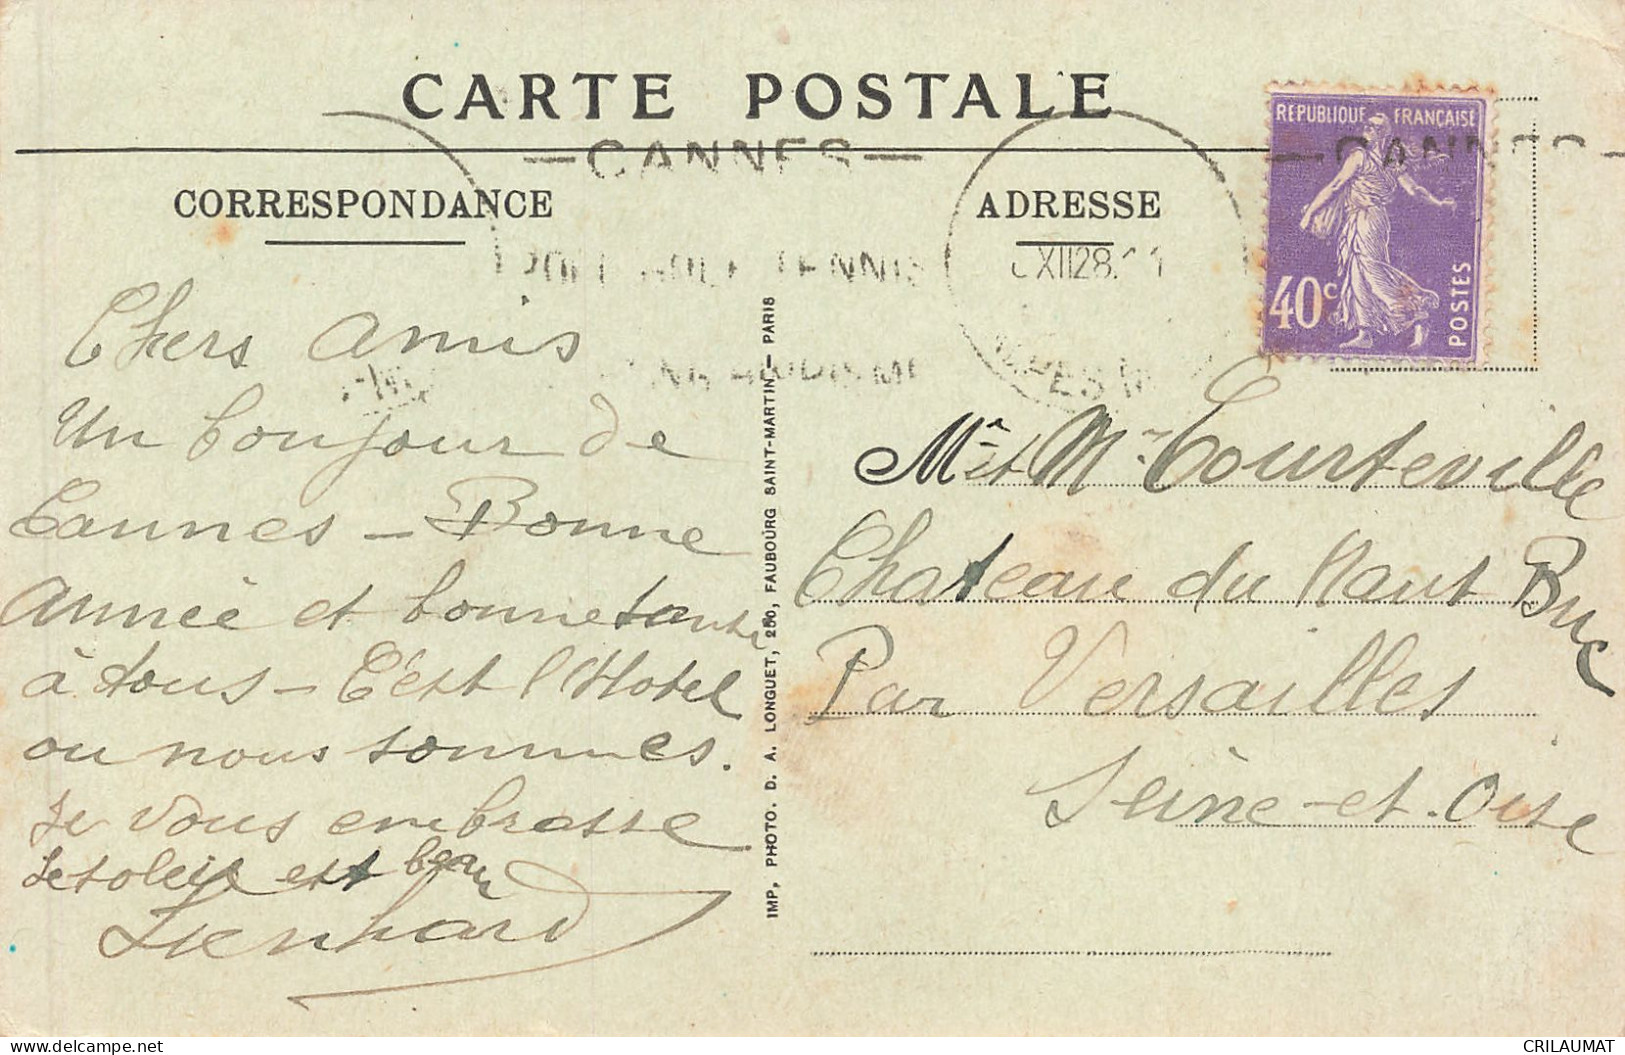 CARTE POSTALE
CORRESPONDANCE
ADRESSE
— CANNES —
— CANNES —
GOLF TENNIS
XII 28
REPUBLIQUE FRANÇAISE
40c
POSTES
Chers Amis
Un bonjour de
Cannes – Bonne
Année et bonne santé
à tous – C'est l'Hotel
ou nous sommes.
Je vous embrasse
Le soleil est beau
Lienhard
IMP, PHOTO. D. A. LONGUET, 250, FAUBOURG SAINT-MARTIN – PARIS
Mr et Mme Courteville
Chateau du Haut Buc
Par Versailles
Seine-et-Oise
www.delcampe.net
CRILAUMAT